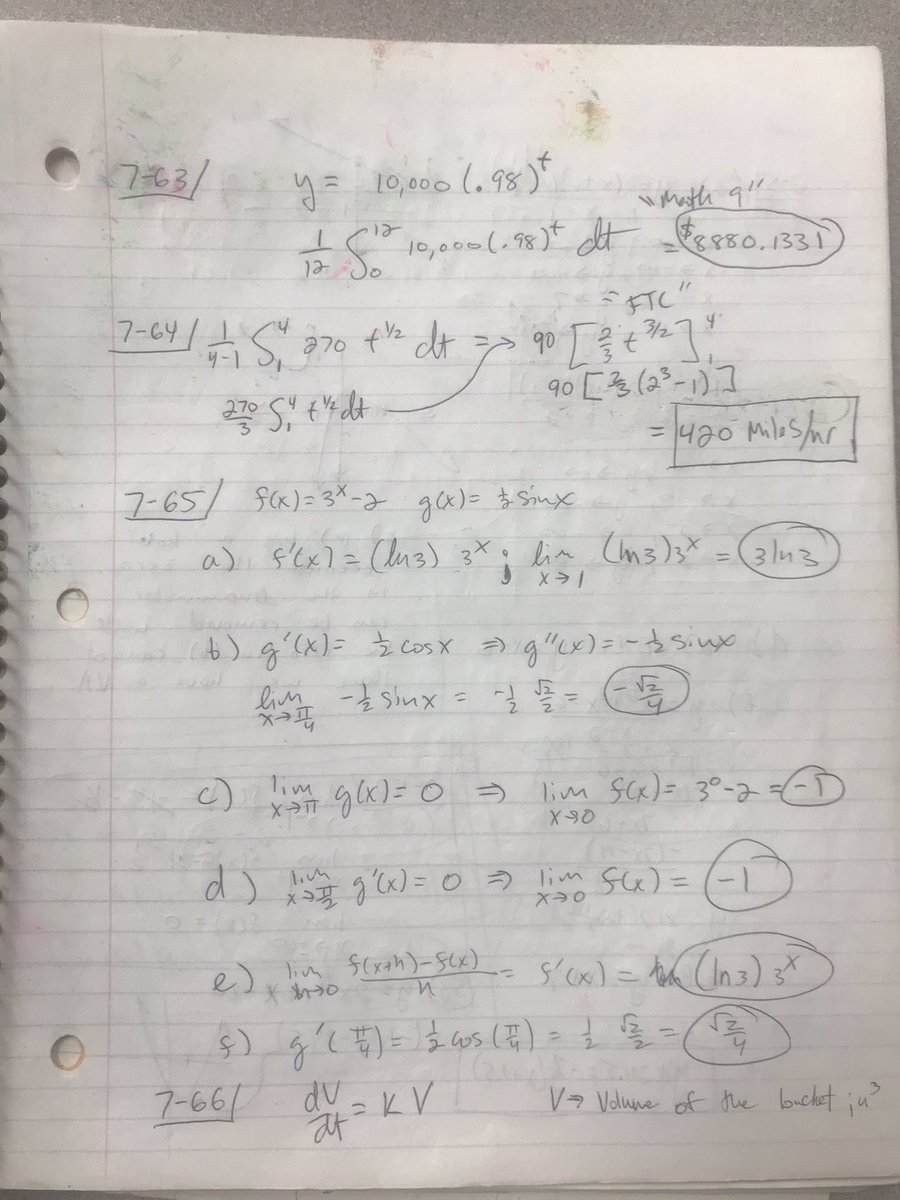 7-63/ y = 10,000 (.98)^t
"Math 9"
1/12 ∫₀¹² 10,000(.98)^t dt = $8880.1331
= FTC"
7-64/ 1/(4-1) ∫₁⁴ 270 t^(1/2) dt = → 90 [2/3 t^(3/2)]₁⁴
90 [2/3 (2³-1)]
270/3 ∫₁⁴ t^(1/2) dt
= 420 Miles/hr
7-65/ f(x) = 3^x - 2 g(x) = ½ sinx
a) f'(x) = (ln3) 3^x ; lim x→1 (ln3)3^x = 3ln3
b) g'(x) = ½ cosx ⇒ g''(x) = -½ sinx
lim x→π/4 -½ sinx = -½ √2/2 = -√2/4
c) lim x→π g(x) = 0 ⇒ lim x→0 f(x) = 3⁰-2 = -1
d) lim x→π/2 g'(x) = 0 ⇒ lim x→0 f(x) = -1
e) lim h→0 (f(x+h)-f(x))/h = f'(x) = (ln3) 3^x
f) g'(π/4) = ½ cos(π/4) = ½ √2/2 = √2/4
7-66/ dV/dt = KV V→ Volume of the bucket in³